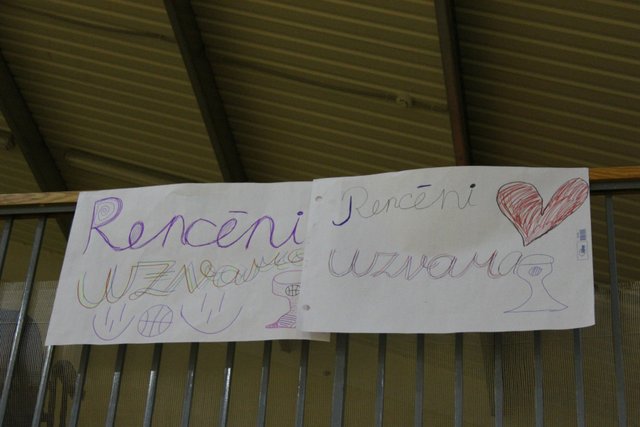 Rencēni
uzvara
Rencēni
uzvara